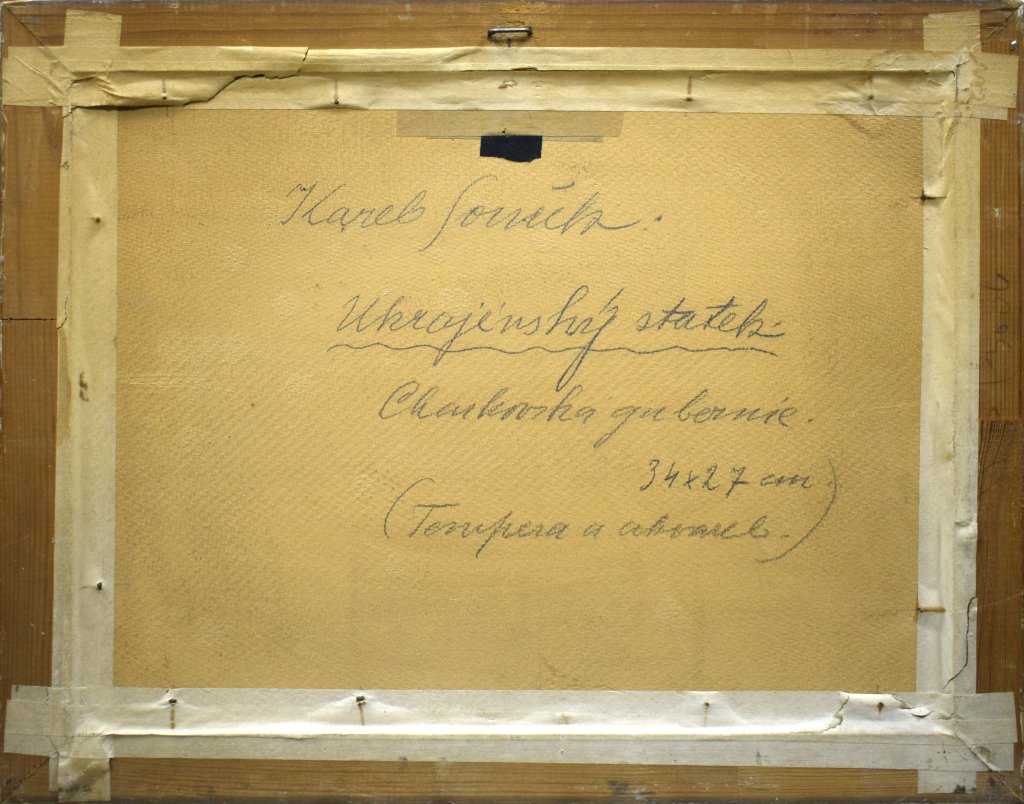 Karel Souček.
Ukrajinský statek
Charkovská gubernie.
34x27 cm
(Tempera a akvarel.)